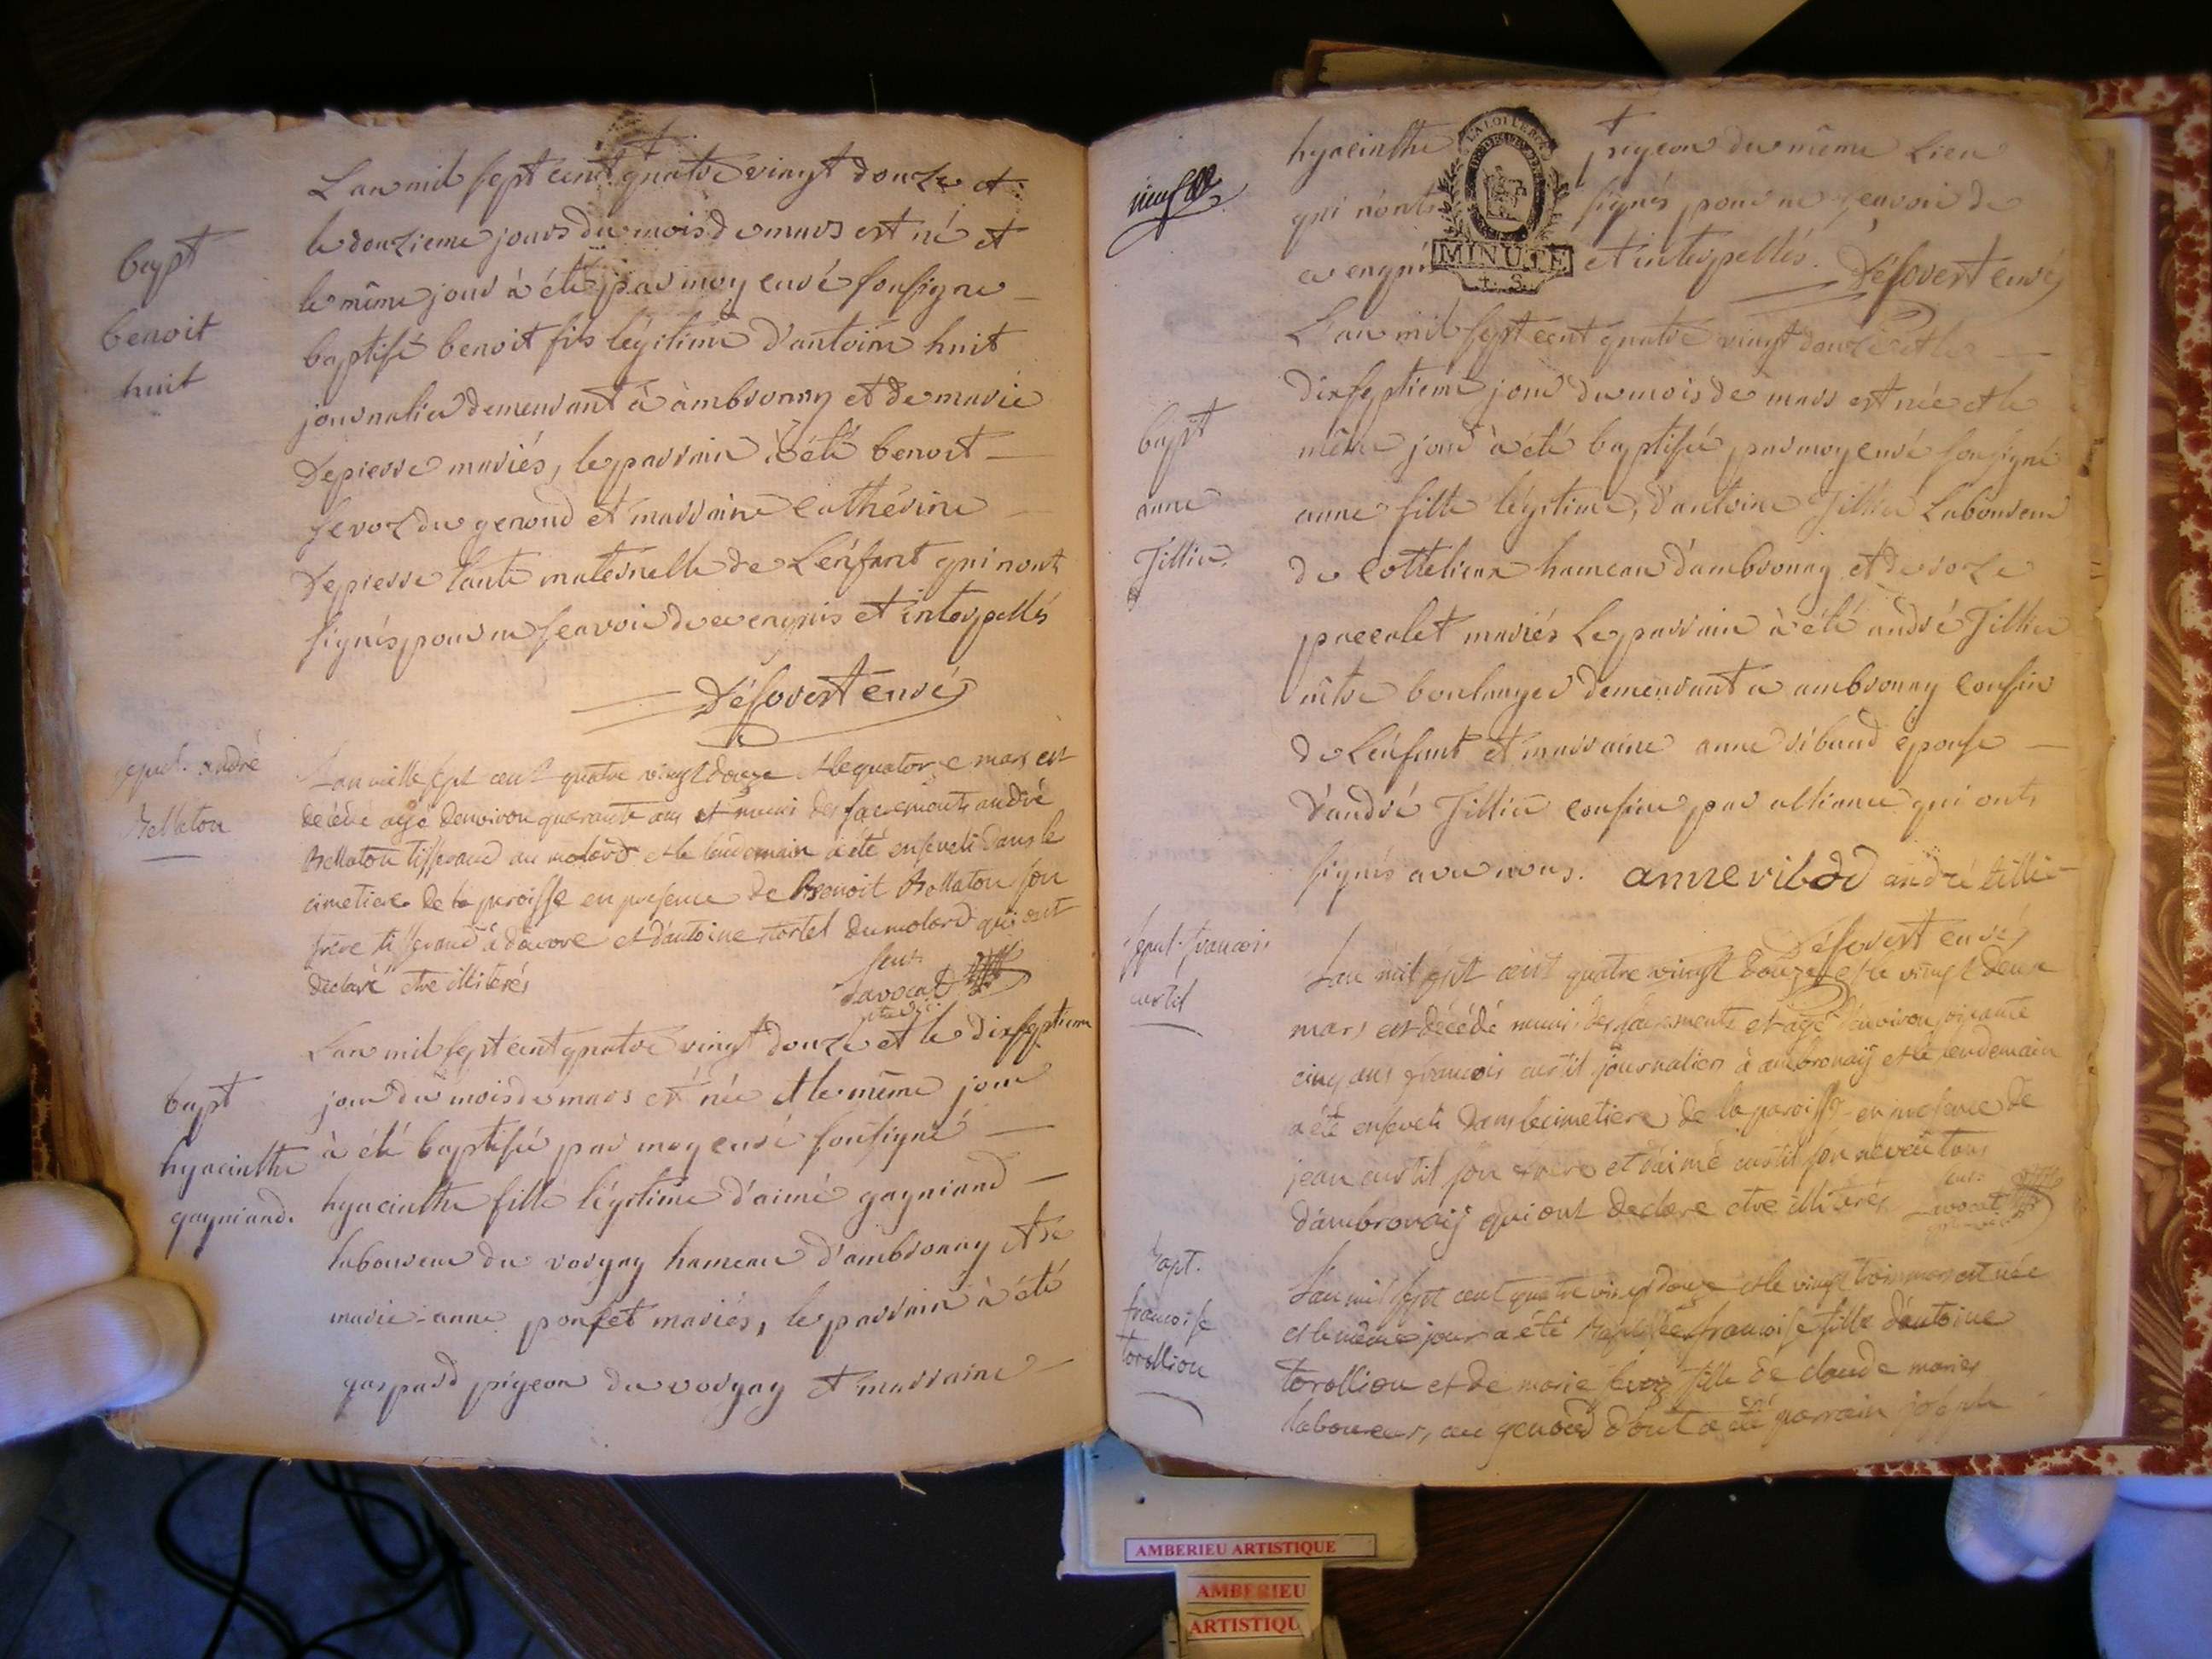 L'an mil sept cent quatre vingt douze et
le douzieme jour du mois de mars est né et
le même jour à été par moy curé soussigné
bapt
benoit
huit
baptisé benoit fils légitime d'antoine huit
journalier demeurant à àmbronay et de marie
Depierre mariés, le parrain à été benoit
fevoz du genoud et marraine catherine
Depierre tante maternelle de L'enfant qui n'ont
signés pour ne sçavoir de ce enquis et interpellés
Désovert curé
sepul. andré
Bellaton
L'an mille sept cent quatre vingt douze et le quatorze mars est
décédé agé denviron quarante ans et muni des sacrements andré
Bellaton tisserand au molard et le lendemain a été enseveli dans le
cimetiere de la paroisse en presence de Benoit Bellaton son
frère tisserand à douvre et d'antoine tortel du molard qui ont
declaré etre illiterés
Savocat
L'an mil sept cent quatre vingt douze et le dixseptieme
jour du mois de mars est née et le même jour
bapt
hyacinthe
gagniand.
à été baptisée par moy curé soussigné
hyacinthe fille légitime d'aimé gagniand
laboureur du vorgey hameau d'ambronay et de
marie-anne ponset mariés, le parrain à été
gaspard pigeon du vorgey et marraine
hyacinthe pigeon du même Lieu
qui n'ont signés pour ne sçavoir de
ce enquis et interpellés. Désovert curé
LA LOI LE ROI
MINUTE
4. S.
L'an mil sept cent quatre vingt douze et le
dixseptieme jour du mois de mars est née et le
bapt
anne
Tillier
même jour à été baptisée par moy curé soussigné
anne fille légitime, d'antoine Tillier Laboureur
de Cottelieux hameau d'ambronay et de roze
paccalet mariés Le parrain à été andré Tillier
mître boulanger demeurant a ambronay cousin
de L'enfant et marraine anne ribaud épouse
d'andré Tillier cousine par alliance qui ont
signés avec nous. anne ribod andré tillie
Désovert curé
sepul. francois
curtil
L'an mil sept cent quatre vingt douze et le vingt deux
mars est décédé muni des sacrements et agé denviron soixante
cinq ans francois curtil journalier à ambronaÿ et le lendemain
a été enseveli dans le cimetiere de la paroisse en presence de
jean curtil son frère et d'aimé curtil son neveu tous
d'ambronaÿ qui ont declare etre illiterés
Savocat
bapt.
francoise
torollion
L'an mil sept cent quatre vingt douze et le vingt trois mars est née
et le même jour a été Baptisée francoise fille d'antoine
torollion et de marie fevoz fille de claude mariés
laboureur, au genoud dont a été parrain joseph